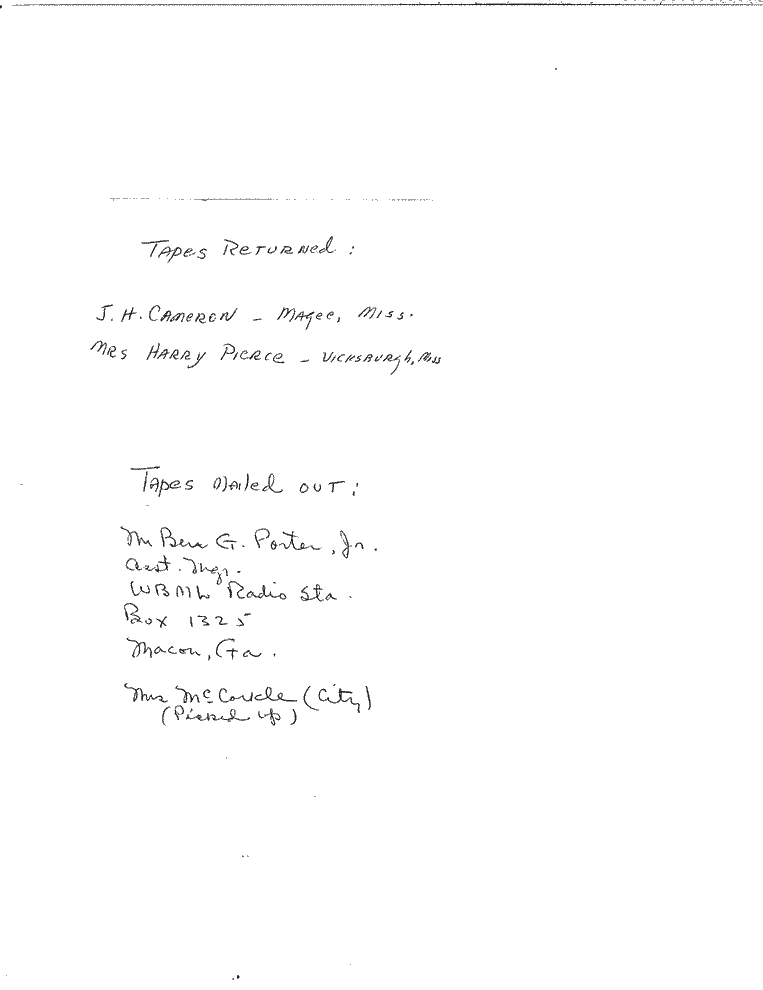 Tapes Returned :
J. H. Cameron - Magee, Miss.
Mrs Harry Pierce - Vicksburgh, Miss
Tapes Mailed out :
Mr Ben G. Porter, Jr.
Asst. Mgr.
WBML Radio Sta.
Box 1325
Macon, Ga.
Mrs McCorkle (City)
(Picked up)